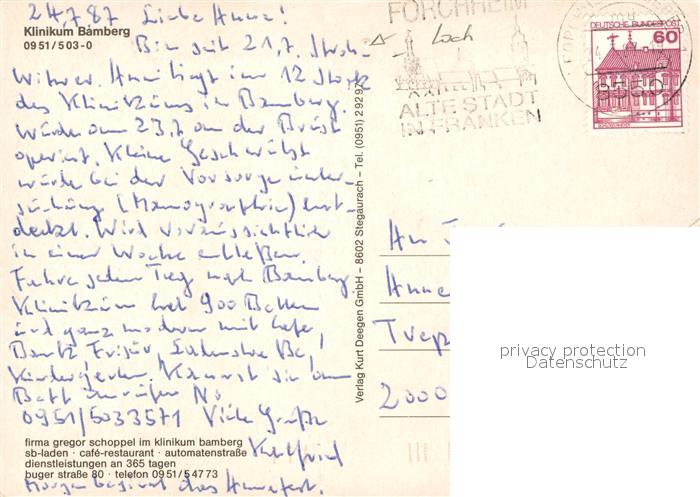 24.7.87 Liebe Anne!
Klinikum Bamberg
0951/503-0
Bin seit 21.7. Stroh-
witwer. Anni liegt im 12 Stock
des Klinikums in Bamberg.
Wurde am 23.7 an der Brust
operiert. Kleine Geschwulst
wurde bei der Vorsorgeunter-
suchung (Mamographie) ent-
deckt. Wird voraussichtlich
in einer Woche entlassen.
Fahre jeden Tag nach Bamberg.
Klinikum hat 900 Betten
und ganz modern mit Cafe,
Bank Frisör, Ladenstraße!
Kindergarten. Kannst sie am
Bett anrufen No
0951/5033571 Viele Grüße
firma gregor schoppel im klinikum bamberg
Karlfried
sb-laden · café-restaurant · automatenstraße
dienstleistungen an 365 tagen
buger straße 80 · telefon 0951/54773
Morgen beginnt das Annafest.
Verlag Kurt Deegen GmbH – 8602 Stegaurach – Tel. (0951) 29297
FORCHHEIM
Loch
ALTE STADT
IN FRANKEN
DEUTSCHE BUNDESPOST
60
8550
An
Anne
Trep
2000
privacy protection
Datenschutz